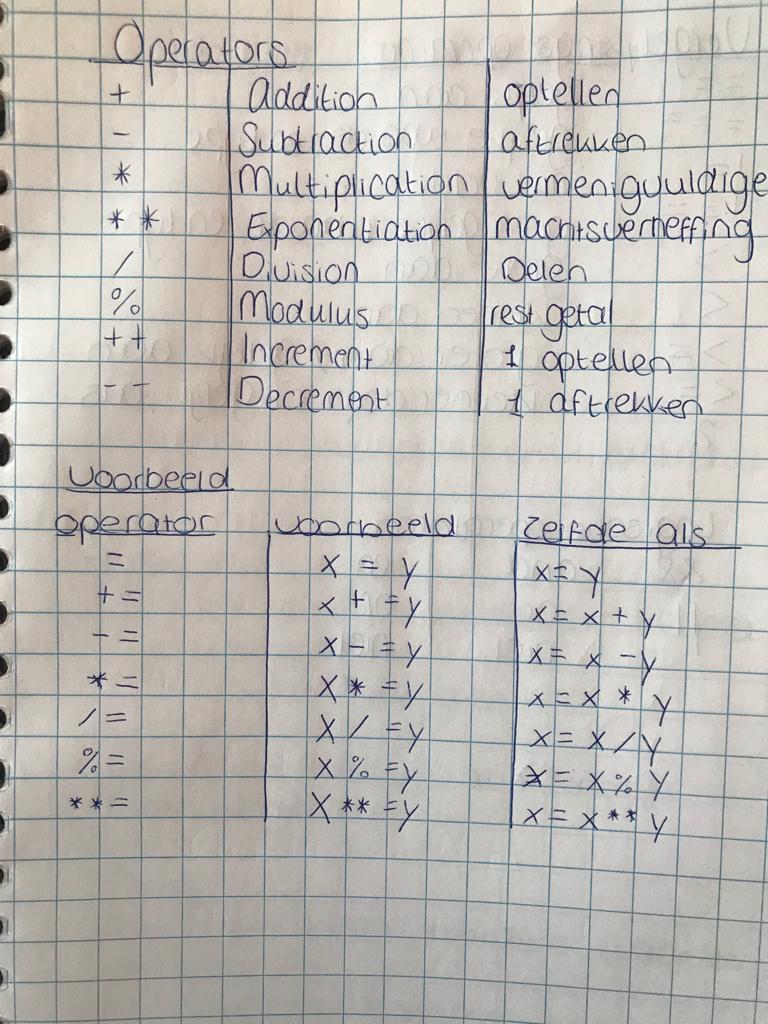 Operators
+ Addition optellen
- Subtraction aftrekken
* Multiplication vermenigvuldige
** Exponentiation machtsverheffing
/ Division Delen
% Modulus rest getal
++ Increment 1 optellen
-- Decrement 1 aftrekken
voorbeeld
operator voorbeeld zelfde als
= x = y x = y
+= x + = y x = x + y
-= x - = y x = x - y
*= x * = y x = x * y
/= x / = y x = x / y
%= x % = y x = x % y
**= x ** = y x = x ** y